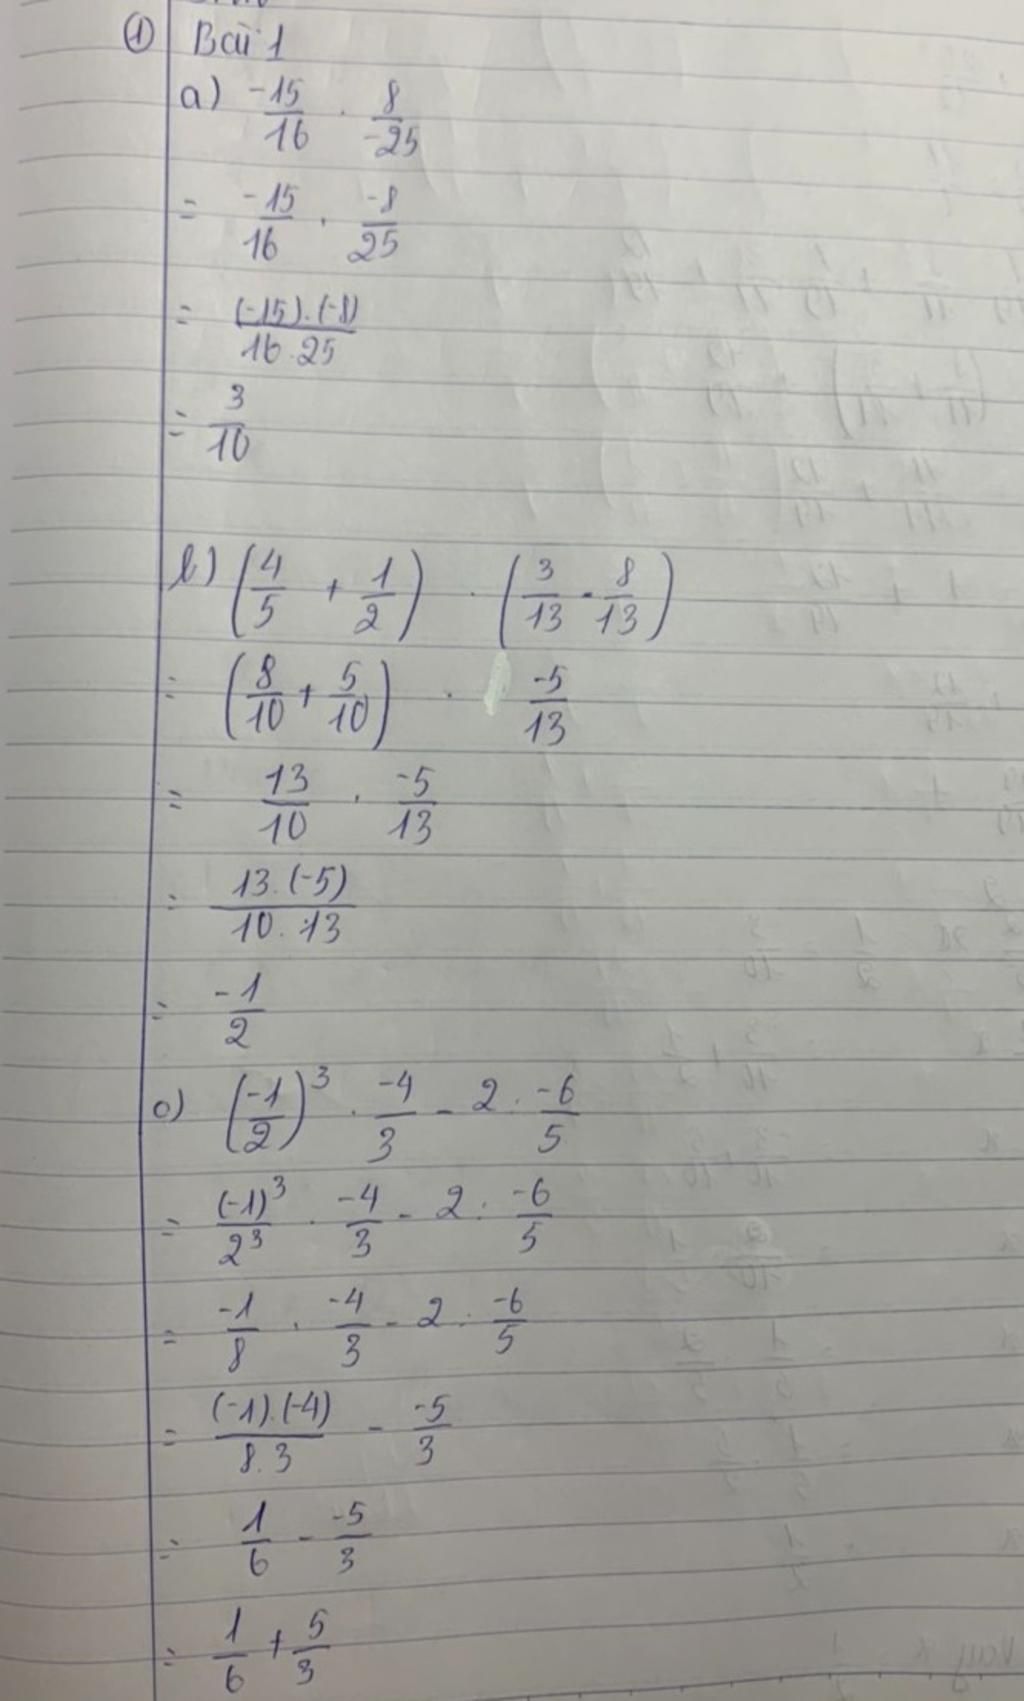 ① Bài 1
a) -15/16 . 8/-25
= -15/16 . -8/25
= (-15).(-8)/16.25
= 3/10
b) (4/5 + 1/2) . (3/13 - 8/13)
= (8/10 + 5/10) . -5/13
= 13/10 . -5/13
= 13.(-5)/10.13
= -1/2
c) (-1/2)³ . -4/3 - 2 : -6/5
= (-1)³/2³ . -4/3 - 2 : -6/5
= -1/8 . -4/3 - 2 : -6/5
= (-1).(-4)/8.3 - -5/3
= 1/6 - -5/3
= 1/6 + 5/3